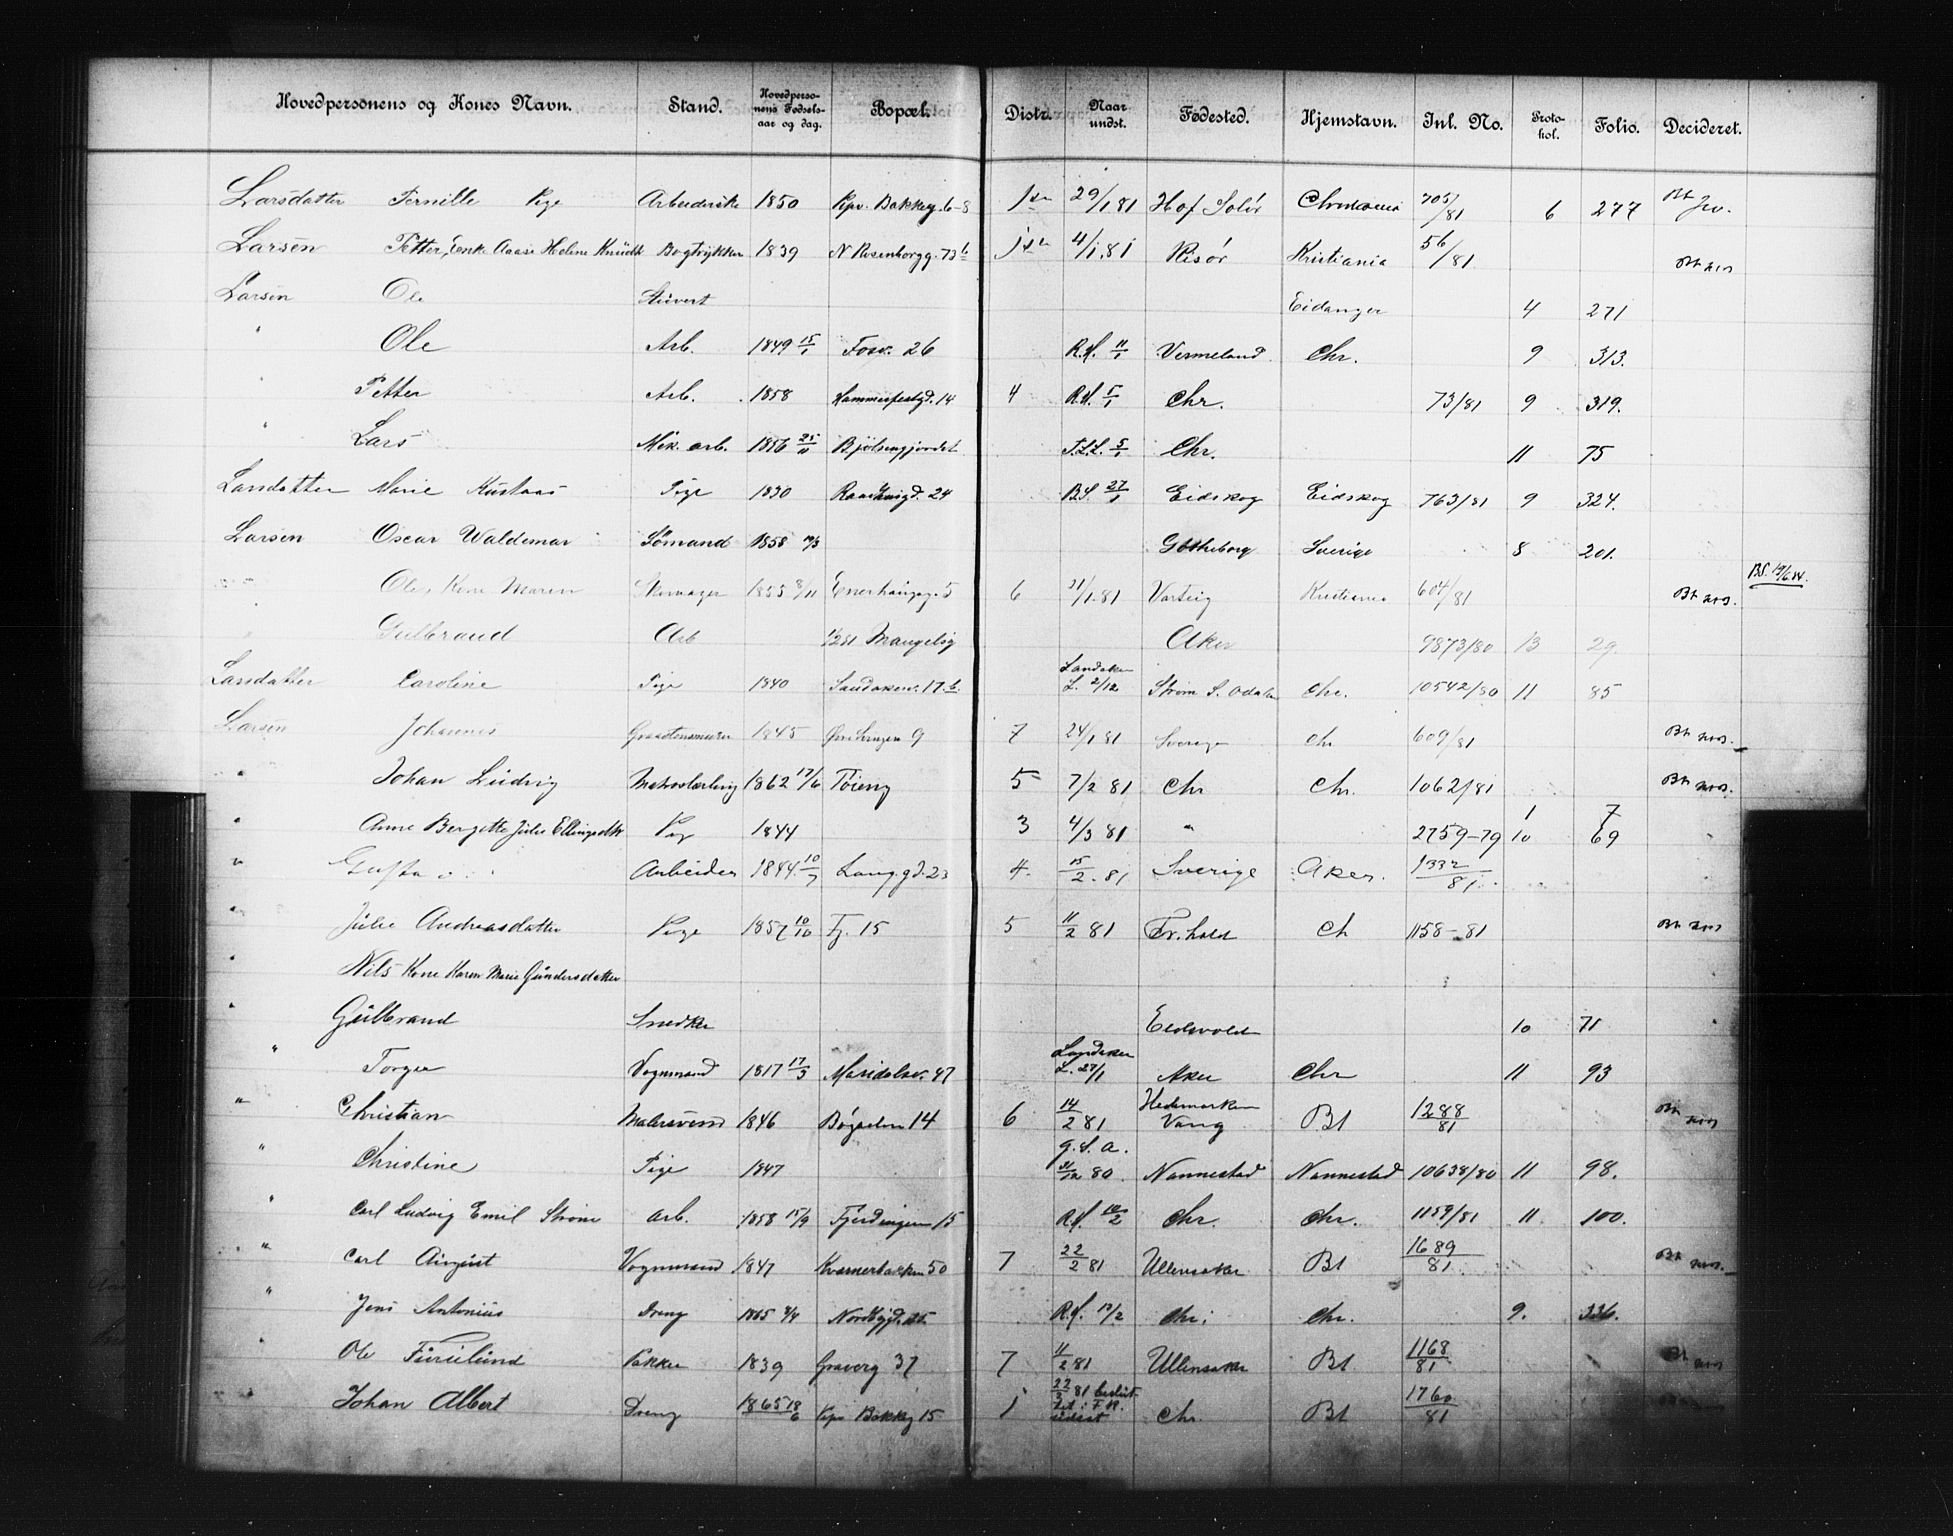 Hovedpersonens og Kones Navn. Stand. Hovedpersonens Fødselsaar og dag. Bopæl. Distr. Naar undst. Fødested. Hjemstavn. Inl. No. Protokol. Folio. Decideret.
Larsdatter Pernille Pige Arbeiderske 1850 Kpv. Bakkeg. 6-8 29/1 81 Hof Solør 705/81 6 277
Larsen Petter, Enke Aase Helene Bogtrykker 1839 N Rosenborgg. 73 4/1.81 Risør Kristiania 56/81
Larsen Ole Stuvert Eidanger 4 271
" Ole Arb. 1849 15/1 Fosv. 26 R.f. 11/1 Vermeland Chr. 9 313.
" Petter Arb. 1858 Hammersfestgd. 14 4 R.f. 5/1 Chr. 73/81 9 319.
" Lars Mek. arb. 1856 25/11 Bjølsengjordet 5/1 Chr. 11 75
Larsdatter Marie Pige 1830 24 27/1 Eidskog Eidskog 763/81 9 324.
Larsen Oscar Waldemar Sømand 1858 Gøtheborg Sverige 8 201.
" Ole, Kone Maren 1855 8/11 Enerhaugg. 5 6 21/1.81 Varteig Kristiania 604/81
" Gulbrand Arb Aker 9873/80 13 29.
Larsdatter Caroline Pige 1840 Sandakerv. 17 L. 2/12 Strøm S. Odalen Chr. 10542/80 11 85
Larsen Johannes 1845 9 7 24/1 81 Sverige Chr 609/81
" Johan Ludvig 1862 17/6 Tøieng 5 7/2 81 Chr Chr. 1062/81
" Anne Bergitte Julie Pige 1844 3 4/3 81 " 2759-79 1 7 10 69
" Gusta Arbeider 1844 10/7 Lang.gd. 23 4. 15/2.81 Sverige Aker. 1332/81
" Julie Andreasdatter Pige 1857 10/10 Fj. 15 5 11/2 81 Fr.hald Ch 1158-81
" Nils Kone Karen Marie Gundersdatter
" Gulbrand Snedker Eidsvold 10 71
" Torger Vognmand 1817 17/3 Maridalsv. 47 L. 27/1 Aker Chr 11 93
" Christian Malersvend 1846 14 6 14/2 81 Hedemarken Vang Bt 1288/81
" Christine Pige 1847 80 Nannestad Nannestad 10638/80 11 98.
" Carl Ludvig Emil Strøm Arb. 1858 15/9 Fjerdingen 15 R.f. Chr. Chr. 1159/81 11 100.
" Carl August Vognmand 1847 Kværnerbakken 50 7 22/2 81 Ullensaker Bt 1689/81
" Jens Antonius Dreng 1865 R.f. Chr. Chr. 9. 336.
" Ole Furulund Pakker 1839 Graverg 37 7 11/2 81 Ullensaker Bt 1168/81
Johan Albert Dreng 1865 18/6 Kpv Bakkeg 15 1 22/3 81 Chr. Bt 1760/81